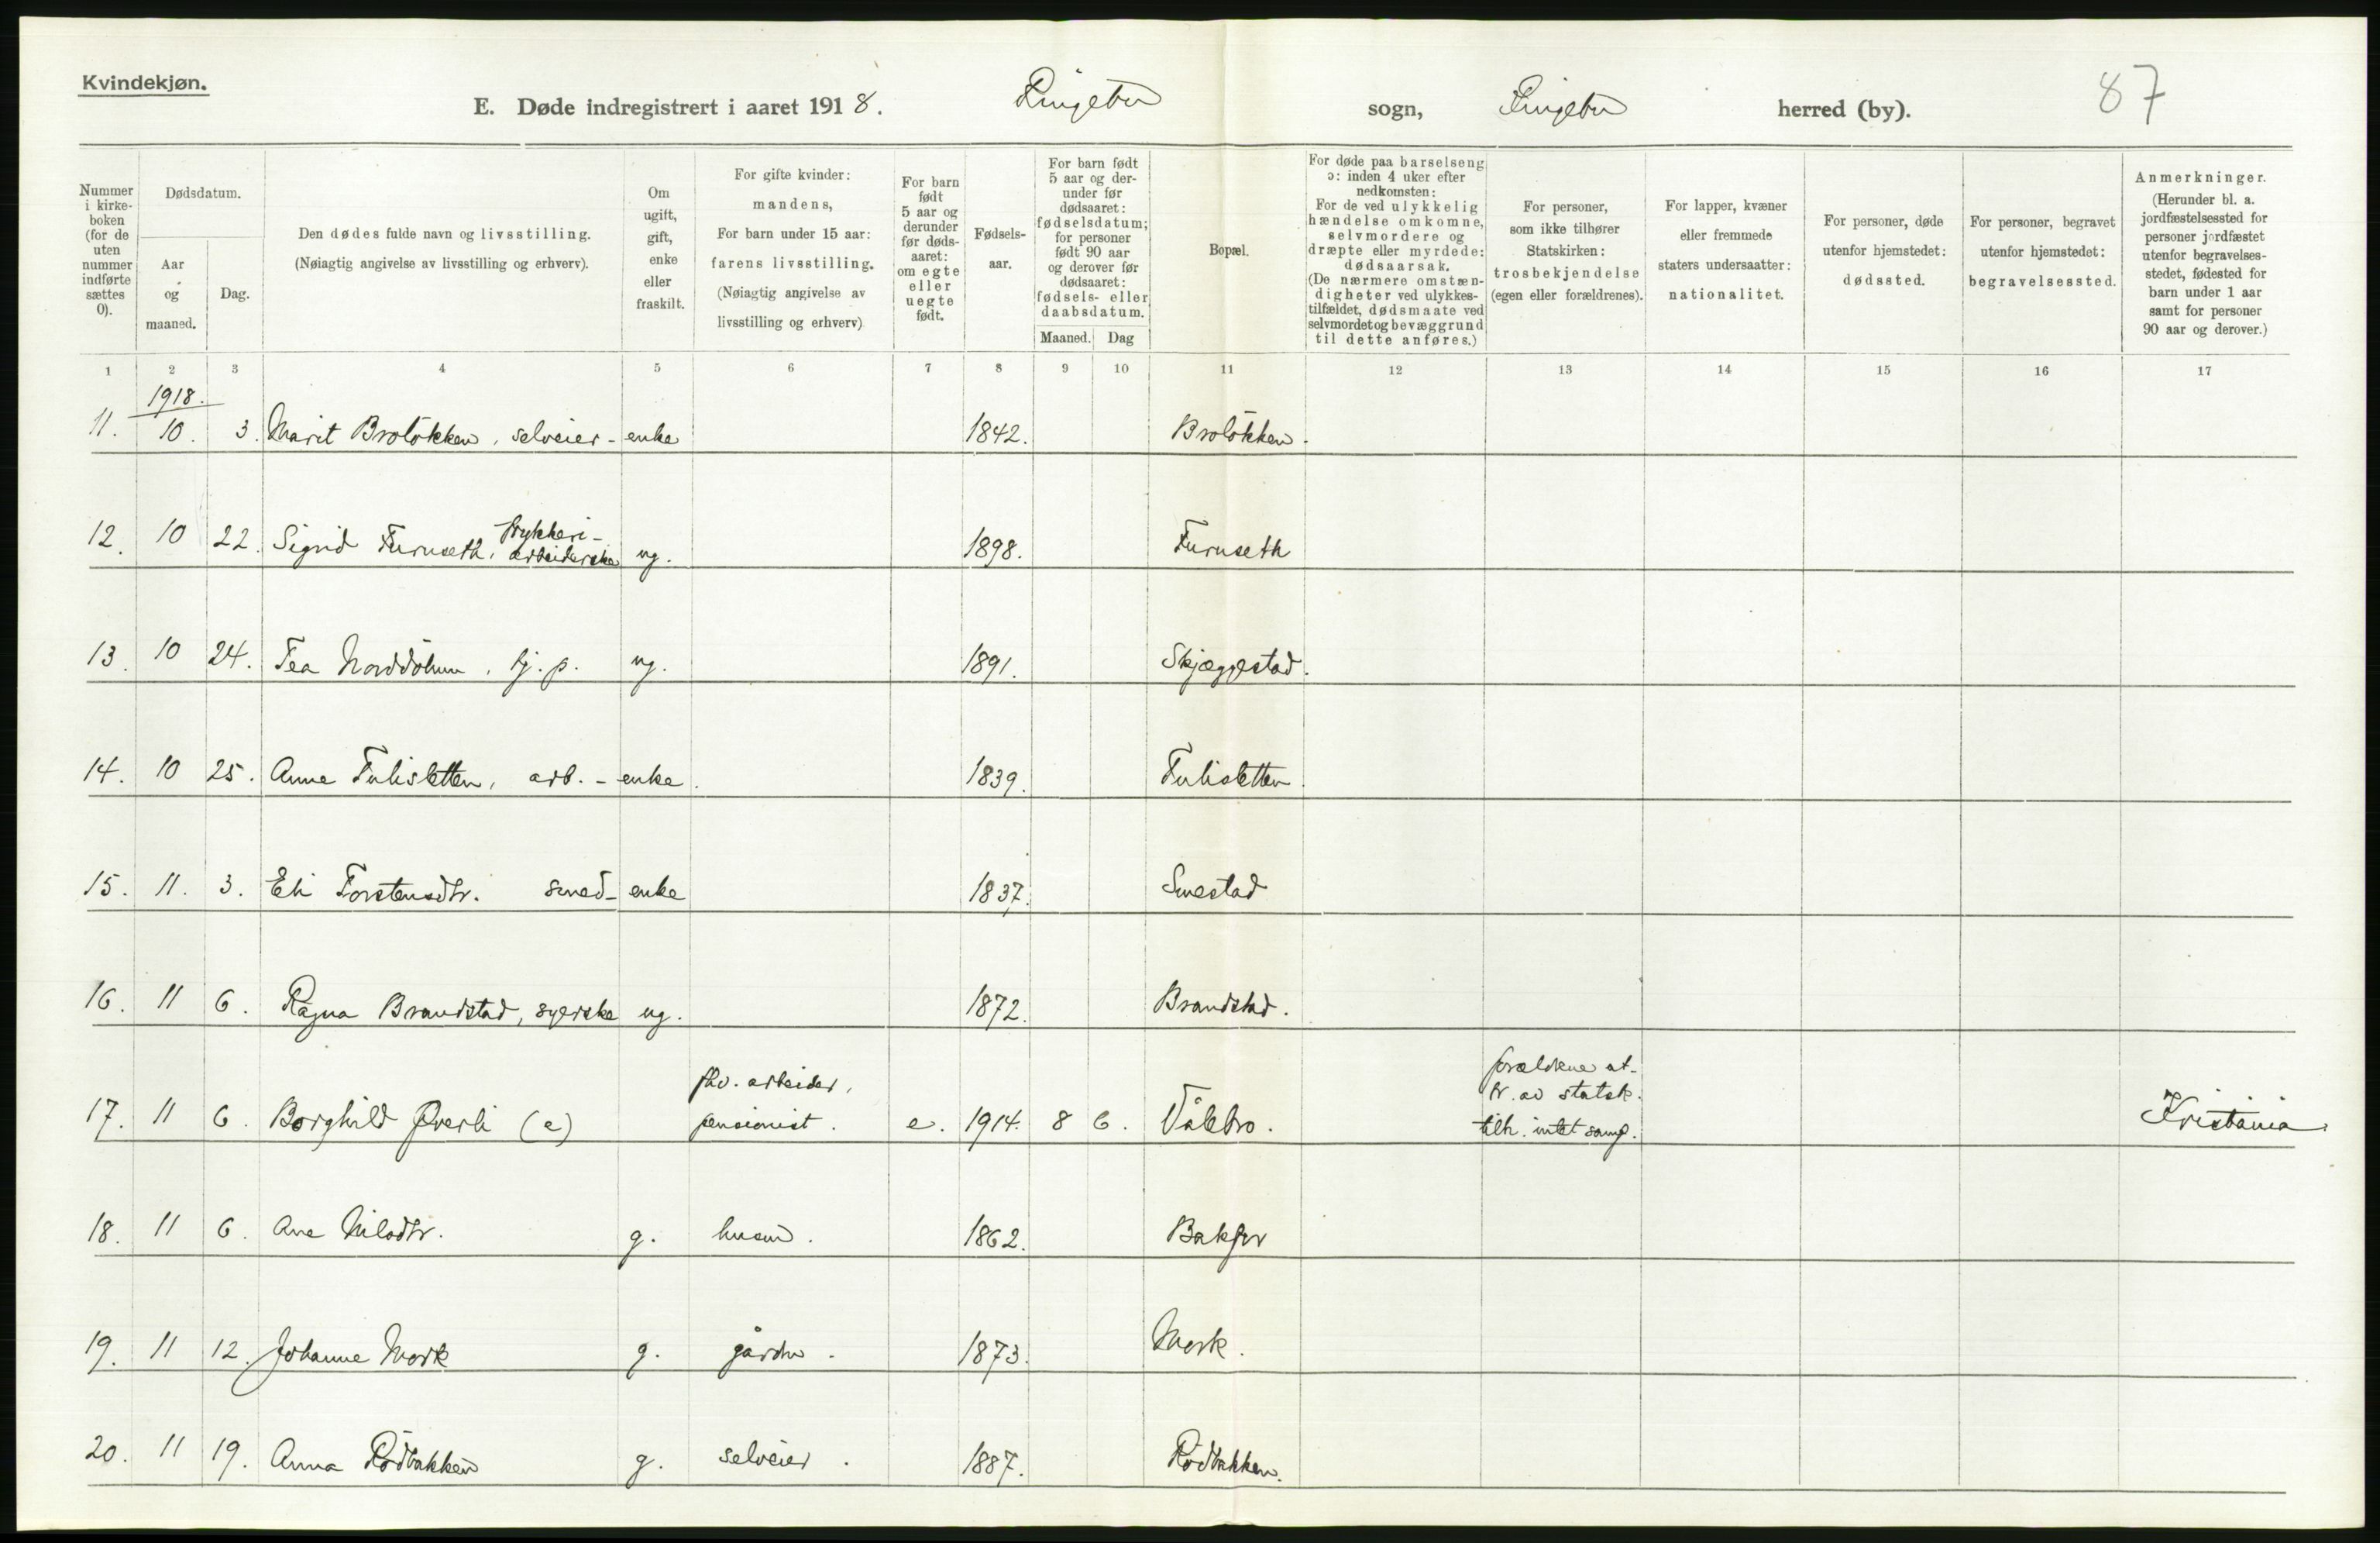 Kvindekjøn.
E. Døde indregistrert i aaret 1918. Ringebu sogn, Ringebu herred (by). 87
Nummer i kirke-boken (for de uten nummer indførte sættes 0).
Dødsdatum.
Aar og maaned.
Dag.
Den dødes fulde navn og livsstilling.
(Nøiagtig angivelse av livsstilling og erhverv).
Om ugift, gift, enke eller fraskilt.
For gifte kvinder: mandens,
For barn under 15 aar: farens livsstilling.
(Nøiagtig angivelse av livsstilling og erhverv)
For barn født 5 aar og derunder før døds-aaret: om egte eller uegte født.
Fødsels-aar.
For barn født 5 aar og der-under før dødsaaret: fødselsdatum; for personer født 90 aar og derover før dødsaaret: fødsels- eller daabsdatum.
Maaned. Dag
Bopæl.
For døde paa barselseng ɔ: inden 4 uker efter nedkomsten:
For de ved ulykkelig hændelse omkomne, selvmordere og dræpte eller myrdede: dødsaarsak.
(De nærmere omstæn-digheter ved ulykkes-tilfældet, dødsmaate ved selvmordet og bevæggrund til dette anføres.)
For personer, som ikke tilhører Statskirken: trosbekjendelse (egen eller forældrenes).
For lapper, kvæner eller fremmede staters undersaatter: nationalitet.
For personer, døde utenfor hjemstedet: dødssted.
For personer, begravet utenfor hjemstedet: begravelsessted.
Anmerkninger.
(Herunder bl. a. jordfæstelsessted for personer jordfæstet utenfor begravelses-stedet, fødested for barn under 1 aar samt for personer 90 aar og derover.)
1 2 3 4 5 6 7 8 9 10 11 12 13 14 15 16 17
1918.
11. 10. 3. Marit Brolökken, selveier- enke 1842. Brolökken.
12. 10 22. Sigrid Furuseth, trykkeri-
arbeiderske ug. 1898. Furuseth
13. 10 24. Tea Norddölum, tj. p. ug. 1891. Skjæggestad.
14. 10 25. Anne Tulisletten, arb. - enke. 1839. Tulisletten.
15. 11. 3. Eli Torstensdtr. smed- enke 1837. Smestad
16. 11 6. Ragna Brandstad, syerske ug. 1872. Brandstad.
17. 11 6. Borghild Øverli (e) fhv. arbeider,
pensionist. e. 1914. 8 6. Vålebro. forældrene ut-
tr. av statsk.
tilh. intet samf. Kristiania.
18. 11 6. Ane Nilsdtr. g. husm. 1862. Bakfor
19. 11 12. Johanne Mork g. gårdbr. 1873. Mork.
20. 11 19. Anna Rödbakken g. selveier. 1887. Rödbakken.